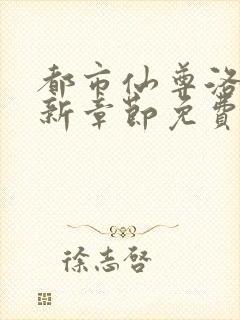 都市仙尊洛
新章節免費
徐志啓